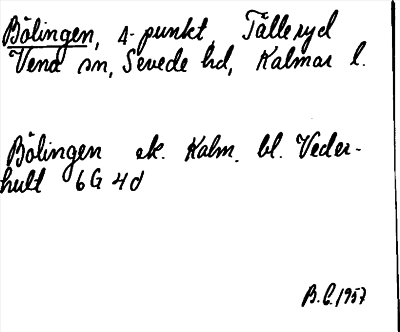 Bölingen, 4-punkt, Tälleryd
Vena sn, Sevede hd, Kalmar l.
Bölingen ek. Kalm. bl. Veder-
hult 6G 4d
B.L. 1957